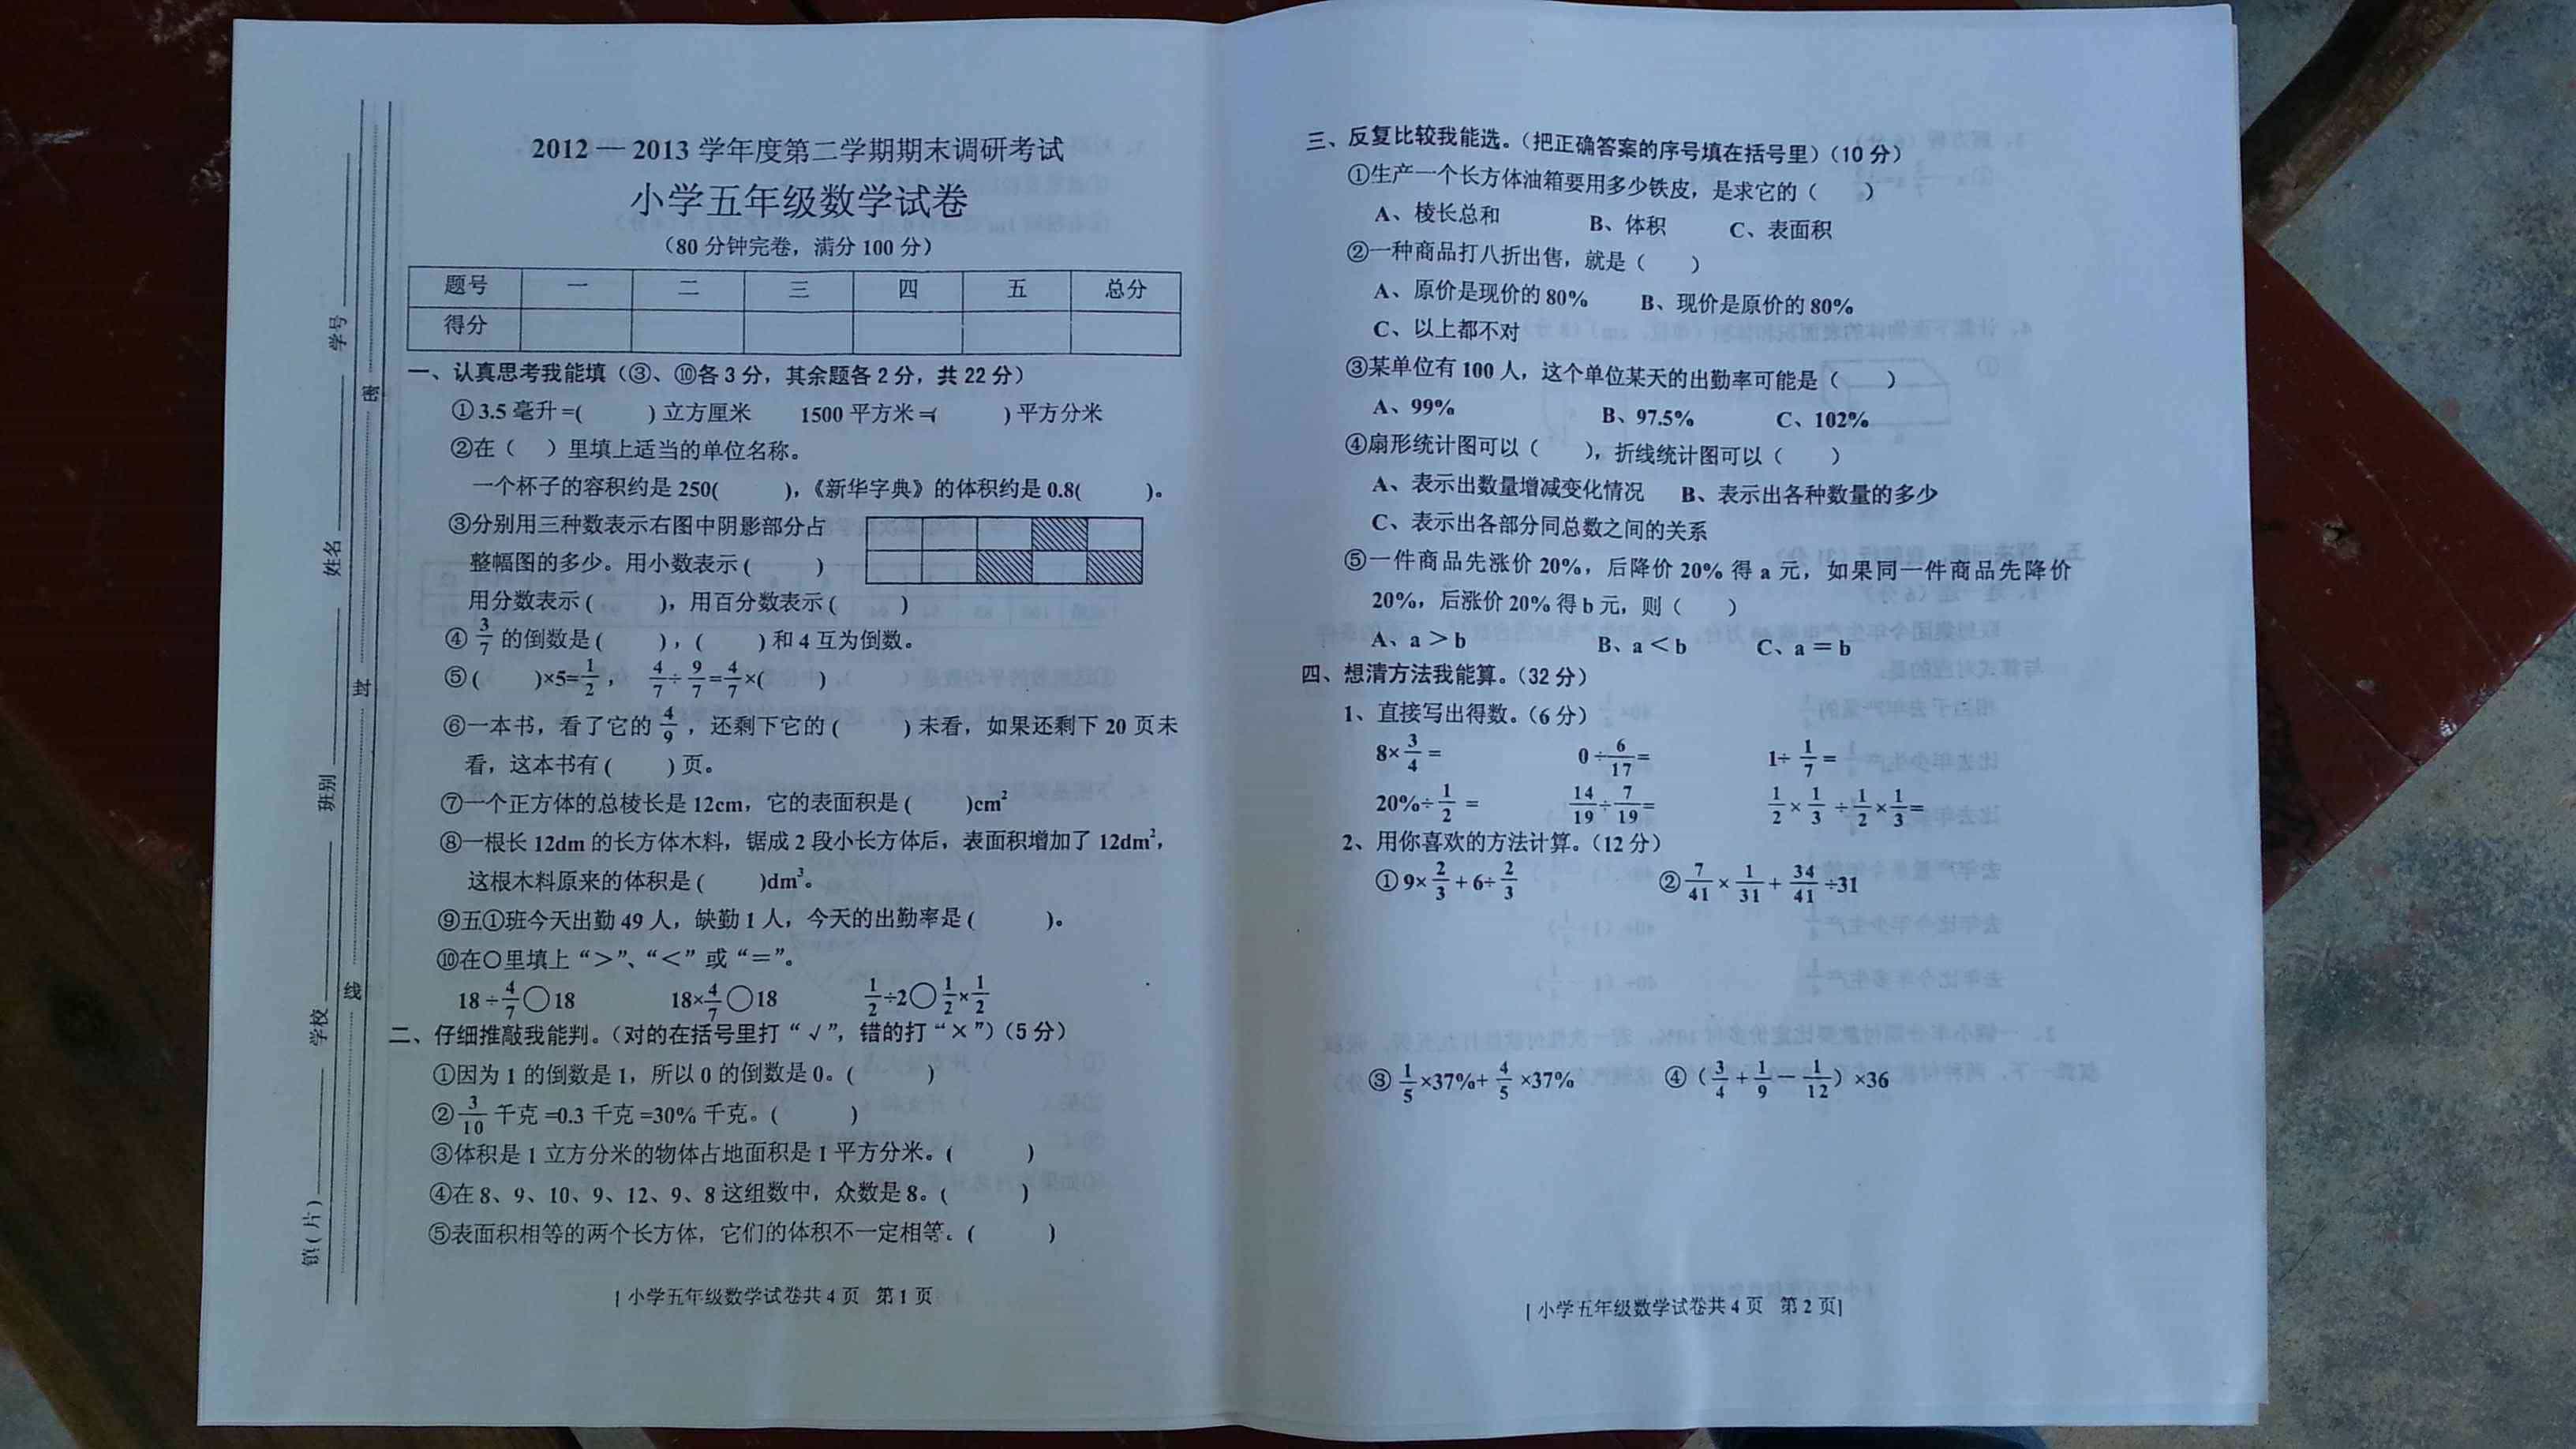 2012 — 2013 学年度第二学期期末调研考试
小学五年级数学试卷
（80 分钟完卷，满分 100 分）
题号 一 二 三 四 五 总分
得分
一、认真思考我能填（③、⑩各 3 分，其余题各 2 分，共 22 分）
① 3.5 毫升 =( ) 立方厘米 1500 平方米 =( ) 平方分米
②在（ ）里填上适当的单位名称。
一个杯子的容积约是 250( )，《新华字典》的体积约是 0.8( )。
③分别用三种数表示右图中阴影部分占
整幅图的多少。用小数表示 ( )
用分数表示 ( )，用百分数表示 ( )
④ 3/7 的倒数是 ( )，( ) 和 4 互为倒数。
⑤ ( )×5=1/2， 4/7÷9/7=4/7×( )
⑥一本书，看了它的 4/9，还剩下它的 ( ) 未看，如果还剩下 20 页未
看，这本书有 ( ) 页。
⑦一个正方体的总棱长是 12cm，它的表面积是 ( )cm²
⑧一根长 12dm 的长方体木料，锯成 2 段小长方体后，表面积增加了 12dm²，
这根木料原来的体积是 ( )dm³。
⑨五①班今天出勤 49 人，缺勤 1 人，今天的出勤率是 ( )。
⑩在○里填上“＞”、“＜”或“＝”。
18÷4/7○18 18×4/7○18 1/2÷2○1/2×1/2
二、仔细推敲我能判。（对的在括号里打“√”，错的打“×”）（5 分）
①因为 1 的倒数是 1，所以 0 的倒数是 0。( )
②3/10 千克 =0.3 千克 =30% 千克。( )
③体积是 1 立方分米的物体占地面积是 1 平方分米。( )
④在 8、9、10、9、12、9、8 这组数中，众数是 8。( )
⑤表面积相等的两个长方体，它们的体积不一定相等。( )
[ 小学五年级数学试卷共 4 页 第 1 页
学号
姓名
班别
学校
镇(片)
密
封
线
三、反复比较我能选。（把正确答案的序号填在括号里）（10 分）
①生产一个长方体油箱要用多少铁皮，是求它的（ ）
A、棱长总和 B、体积 C、表面积
②一种商品打八折出售，就是（ ）
A、原价是现价的 80% B、现价是原价的 80%
C、以上都不对
③某单位有 100 人，这个单位某天的出勤率可能是（ ）
A、99% B、97.5% C、102%
④扇形统计图可以（ ），折线统计图可以（ ）
A、表示出数量增减变化情况 B、表示出各种数量的多少
C、表示出各部分同总数之间的关系
⑤一件商品先涨价 20%，后降价 20% 得 a 元，如果同一件商品先降价
20%，后涨价 20% 得 b 元，则（ ）
A、a＞b B、a＜b C、a＝b
四、想清方法我能算。（32 分）
1、直接写出得数。（6 分）
8×3/4= 0÷6/17= 1÷1/7=
20%÷1/2= 14/19÷7/19= 1/2×1/3÷1/2×1/3=
2、用你喜欢的方法计算。（12 分）
①9×2/3+6÷2/3 ②7/41×1/31+34/41÷31
③1/5×37%+4/5×37% ④（3/4+1/9－1/12）×36
[ 小学五年级数学试卷共 4 页 第 2 页]